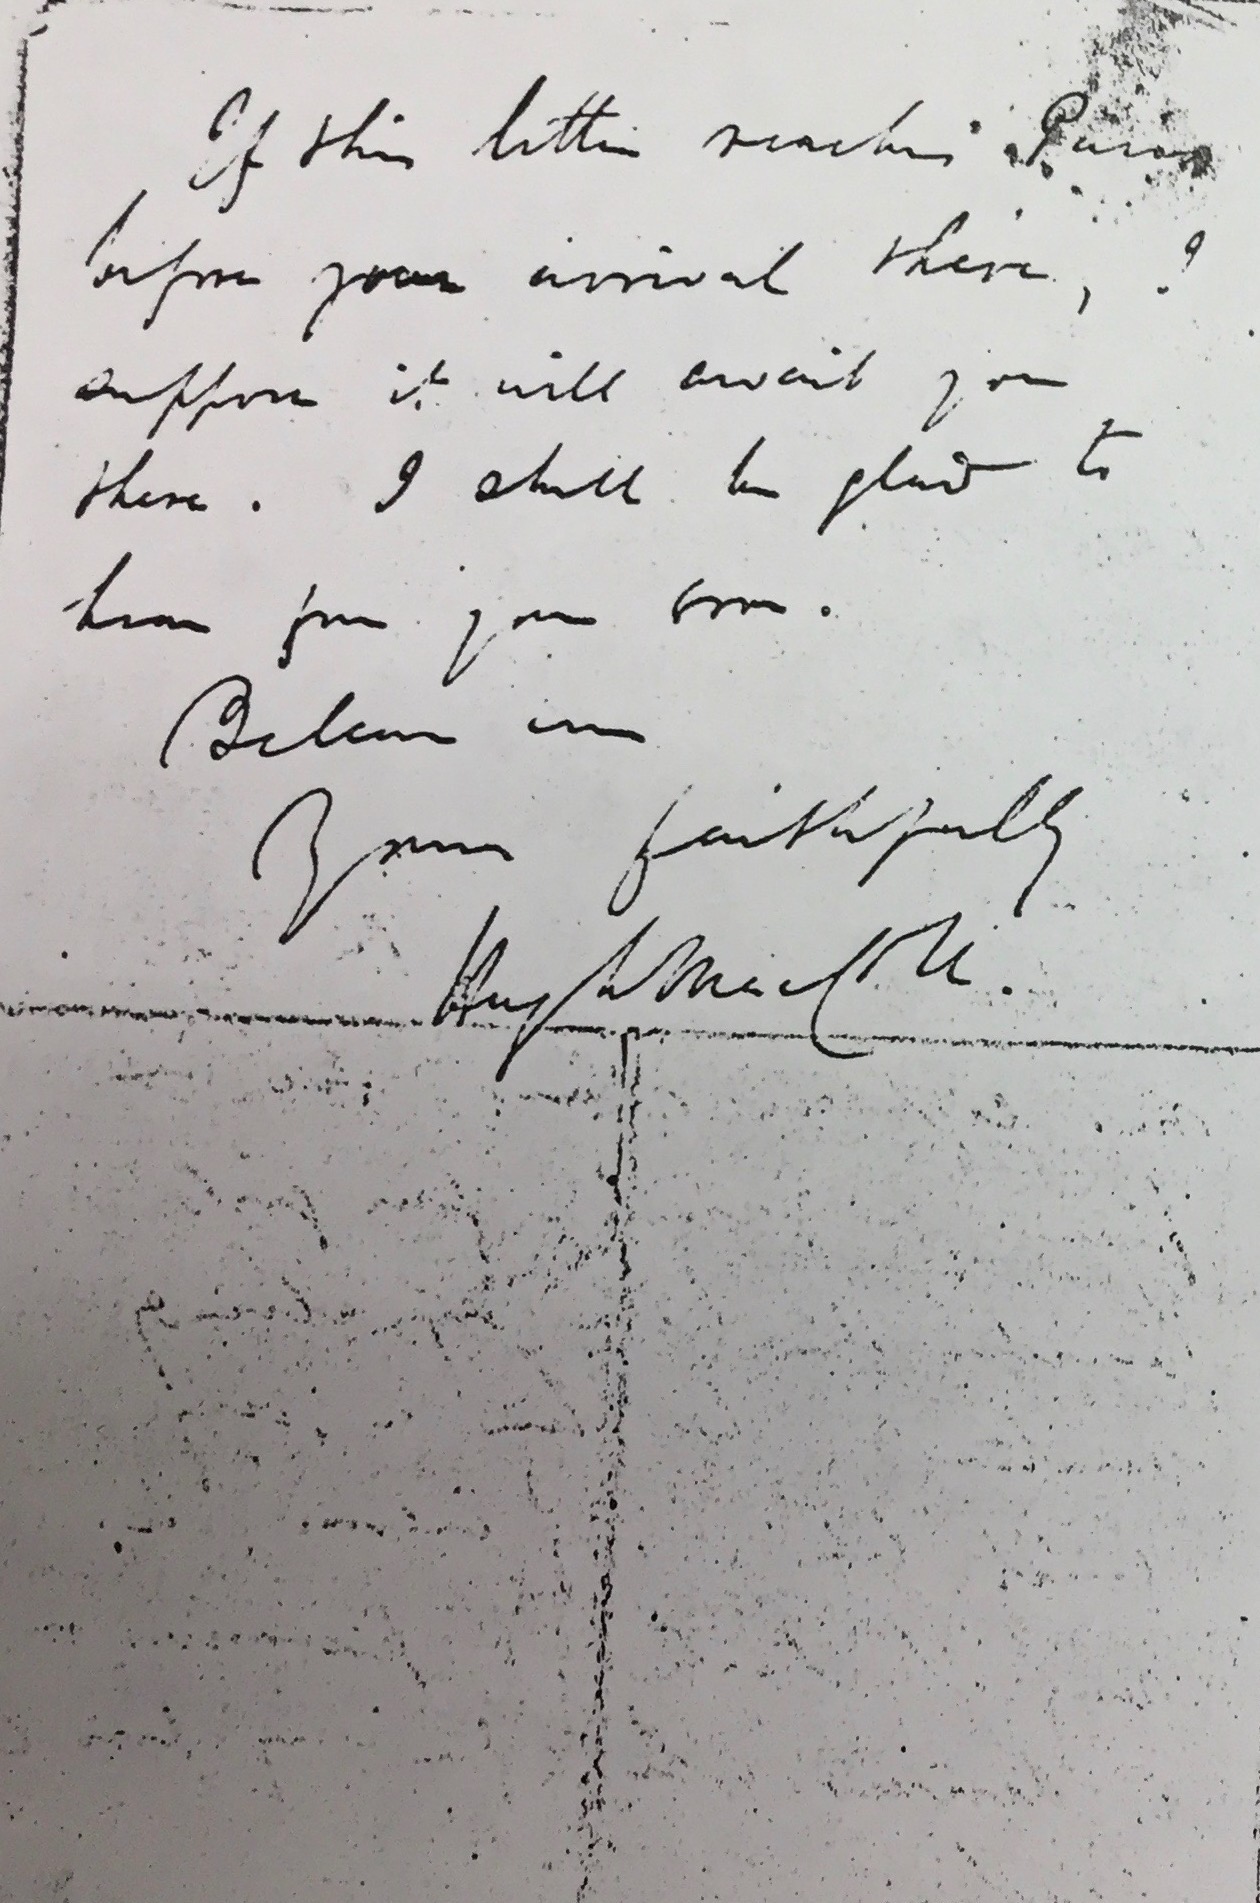 If this letter reaches Paris
before your arrival there, I
suppose it will await you
there. I shall be glad to
hear from you soon.
Believe me
Yours faithfully
Hugh MacColl.